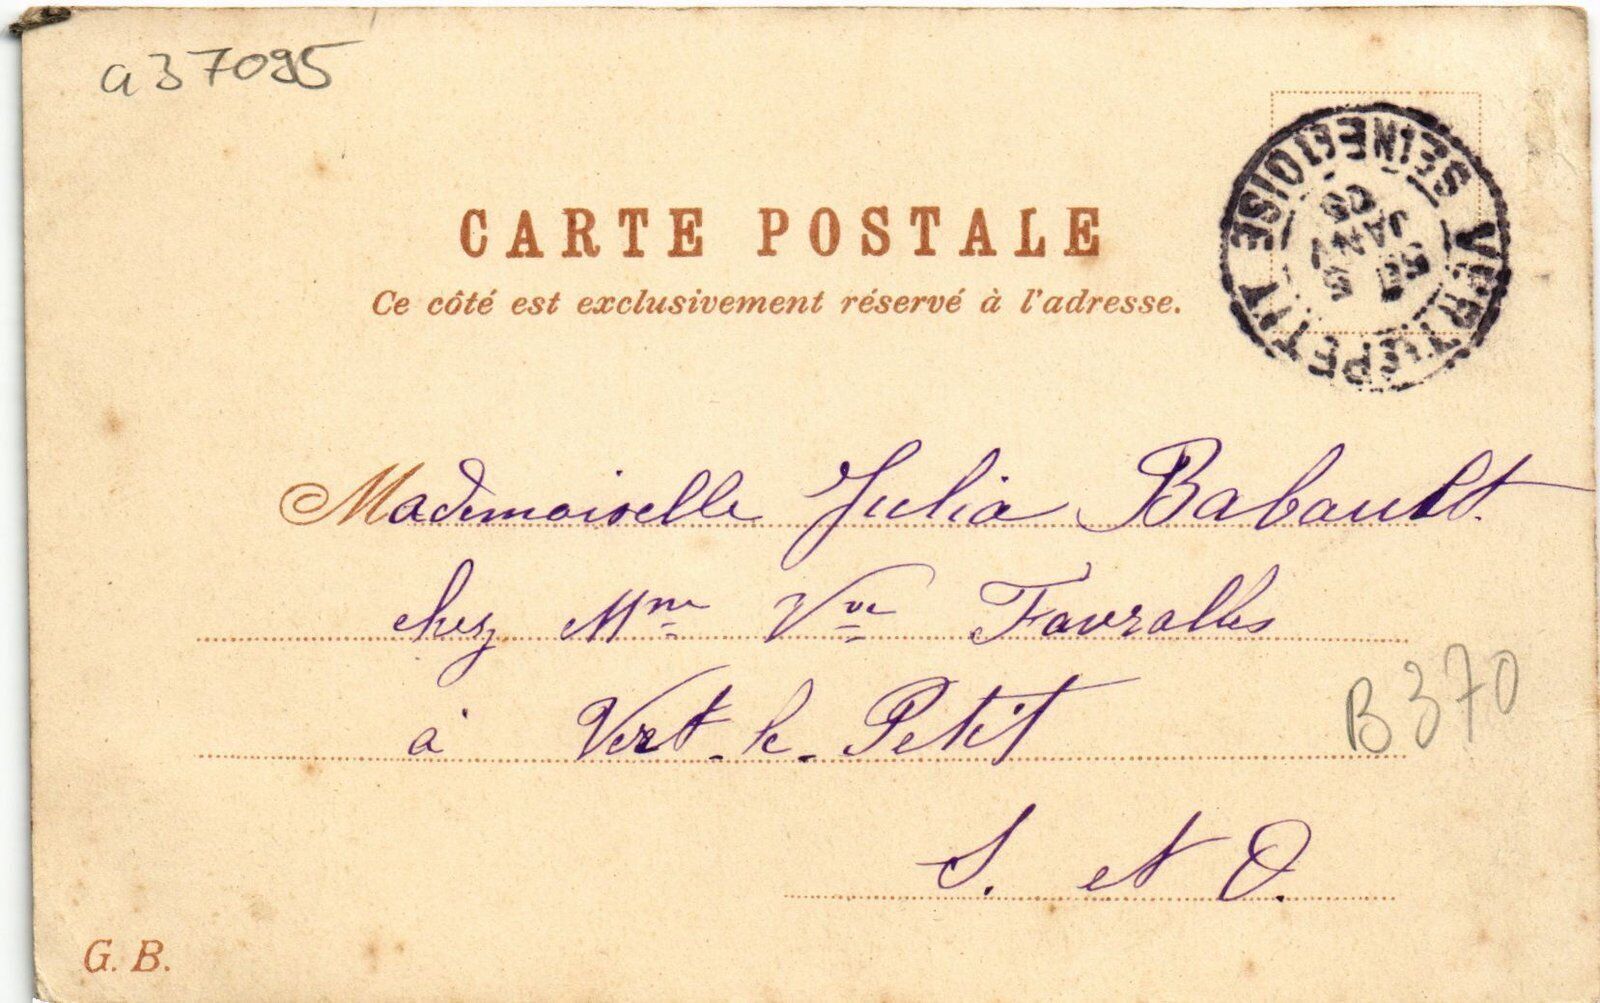 a37095
CARTE POSTALE
Ce côté est exclusivement réservé à l'adresse.
VERT-LE-PETIT
SEINE-ET-OISE
JANV
Mademoiselle Julia Babault.
chez Mme Vve
à Vert-le-Petit
B370
S. et O.
G. B.